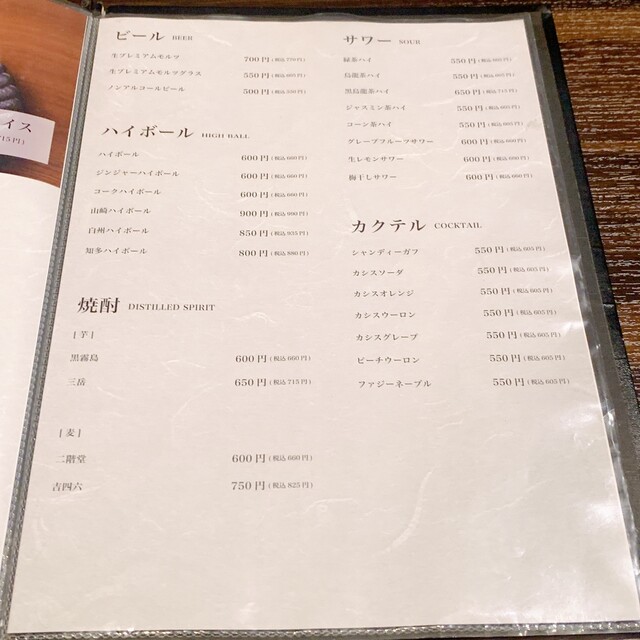 イス
ビール BEER
生プレミアムモルツ 700円(税込770円)
生プレミアムモルツグラス 550円(税込605円)
ノンアルコールビール 500円(税込550円)
ハイボール HIGH BALL
ハイボール 600円(税込660円)
ジンジャーハイボール 600円(税込660円)
コークハイボール 600円(税込660円)
山崎ハイボール 900円(税込990円)
白州ハイボール 850円(税込935円)
知多ハイボール 800円(税込880円)
焼酎 DISTILLED SPIRIT
[芋]
黒霧島 600円(税込660円)
三岳 650円(税込715円)
[麦]
二階堂 600円(税込660円)
吉四六 750円(税込825円)
サワー SOUR
緑茶ハイ 550円(税込605円)
烏龍茶ハイ 550円(税込605円)
黒烏龍茶ハイ 650円(税込715円)
ジャスミン茶ハイ 550円(税込605円)
コーン茶ハイ 550円(税込605円)
グレープフルーツサワー 600円(税込660円)
生レモンサワー 600円(税込660円)
梅干しサワー 600円(税込660円)
カクテル COCKTAIL
シャンディーガフ 550円(税込605円)
カシスソーダ 550円(税込605円)
カシスオレンジ 550円(税込605円)
カシスウーロン 550円(税込605円)
カシスグレープ 550円(税込605円)
ピーチウーロン 550円(税込605円)
ファジーネーブル 550円(税込605円)